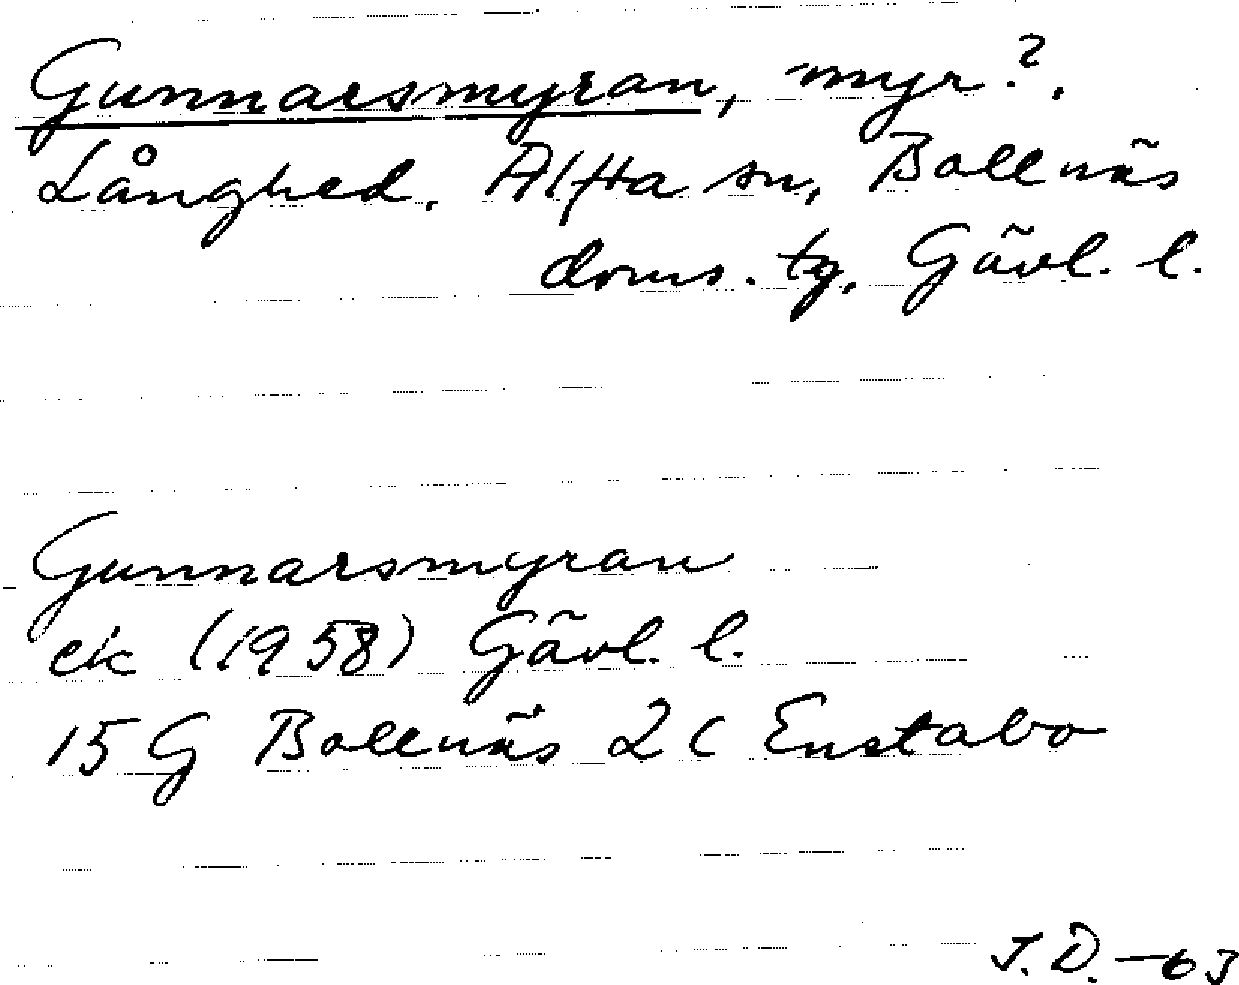 Gunnarsmyran, -myr?.
Långhed. Alfta sn, Bollnäs
doms. tg, Gävl. l.
Gunnarsmyran
ek (1958) Gävl. l.
15 G Bollnäs 2 c Enstabo
J.D.-63